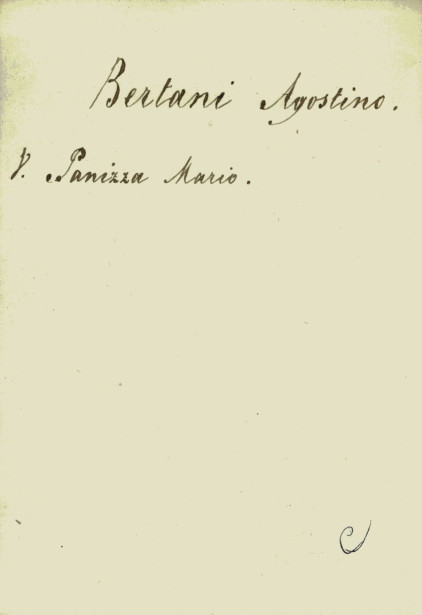 Bertani Agostino.
V. Panizza Mario.